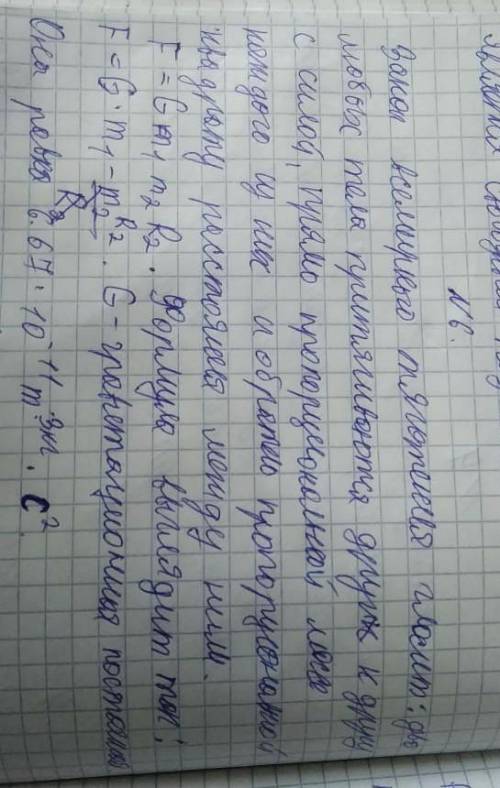 N 6.
Закон всемирного тяготения гласит: два
любых тела притягиваются друг к другу
с силой, прямо пропорциональной массе
каждого из них и обратно пропорциональной
квадрату расстояния между ними.
F = G m1 m2 R2. Формула выглядит так:
F = G · m1 - m2 R2. G - гравитационная постоянная
Она равна 6.67 · 10 -11 m